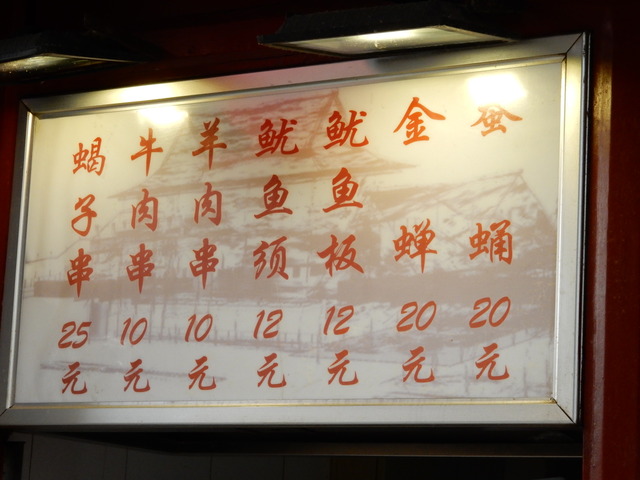 蝎子串 25元
牛肉串 10元
羊肉串 10元
鱿鱼须 12元
鱿鱼板 12元
金蝉 20元
蚕蛹 20元